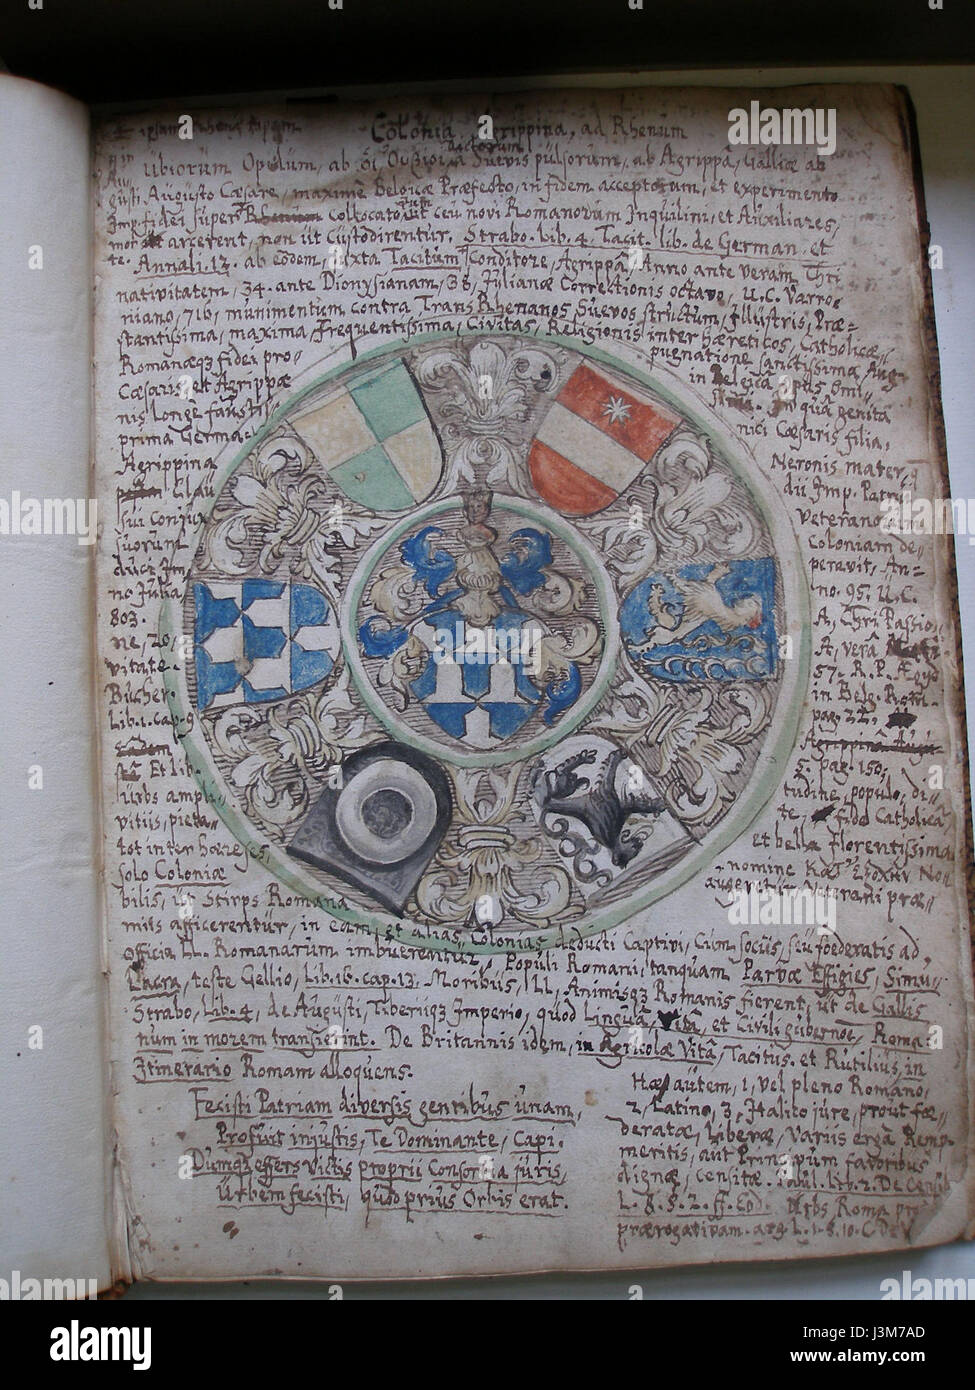 Colonia Agrippina, ad Rhenum
Ubiorum Opidum, ab Suevis pulsorum, ab Agrippa, Galliæ ab
Augusto Cæsare, maxime Belgicæ Præfecto, in fidem acceptorum, et experimento
fidei super Rhenum Collocatorum ut ceu novi Romanorum Inquilini, et Auxiliares,
arcerent, non ut Custodirentur, Strabo. Lib. 4. Tacit. lib. de German. et
Annali. 12. ab eodem, juxta Tacitum Conditore, Agrippa, Anno ante veram Chri
nativitatem, 34. ante Dionysianam, 38, Julianæ Correctionis octavo, U.C. Varro
niano, 716, munimentum Contra TransRhenanos Suevos structum, Illustris, Præ=
stantissima, maxima, Frequentissima, Civitas, Religionis inter hæreticos, Catholicæ,
Romanæq3 fidei pro=
pugnatione sanctissima
Cæsaris et Agrippæ
in Belgica
nis longe faustis
In qua genita
prima Germa=
nici Cæsaris filia,
Agrippina
Neronis mater,
Clau
dii Imp.
Conjux
Veterano
suorum
Coloniam de=
duci
peravit, An=
no Julia
no. 95. U.C.
803.
A, Chri Passio
ne, 20,
A, vera
vitate.
57. R. P. Ægyd
Bucher.
in Belg. Rom.
Lib. 1. cap. 9
pag. 22,
Eadem
Agrippina
Et lib.
5. pag. 150,
Urbs ampli
tudine, populo, di=
vitiis, pieta=
te, fide Catholica
tot inter hæreses,
et bella florentissima
solo Coloniæ
nomine
bilis, ut Stirps Romana
augeretur, Veterani præ=
miis afficerentur, in eam, et alias, Colonias deducti Captivi, Cum Sociis, seu foederatis ad,
Officia LL. Romanarum imbuerentur, Populi Romani, tanquam Parvæ Effigies, Simu=
lacra, teste Gellio, Lib. 16. cap. 13. Moribus, LL, Animisq3 Romanis fierent, ut de Gallis
Strabo, Lib. 4, de Augusti, Tiberiiq3 Imperio, quod Lingua, Vita, et Civili gubernoe, Roma=
num in morem transierint. De Britannis idem, in Agricolæ Vita, Tacitus. et Rutilius, in
Itinerario Romam alloquens.
Fecisti Patriam diversis gentibus unam,
Profuit injustis, Te Dominante, Capi.
Dumq3 offers victis proprii Consortia juris,
Urbem fecisti, quod prius Orbis erat.
Hæ autem, 1, vel pleno Romano,
2, Latino, 3, Italico jure, prout fæ=
deratæ, Liberæ, variis erga Remp.
meritis, aut Principum favoribus
dignæ, censitæ. Paul. Lib. 2. De Censib
L. 8. §. 2. ff. Eod. Urbs Roma
prærogativam. arg. L. 1. §. 10. C. De V
a alamy stock photo
J3M7AD
www.alamy.com